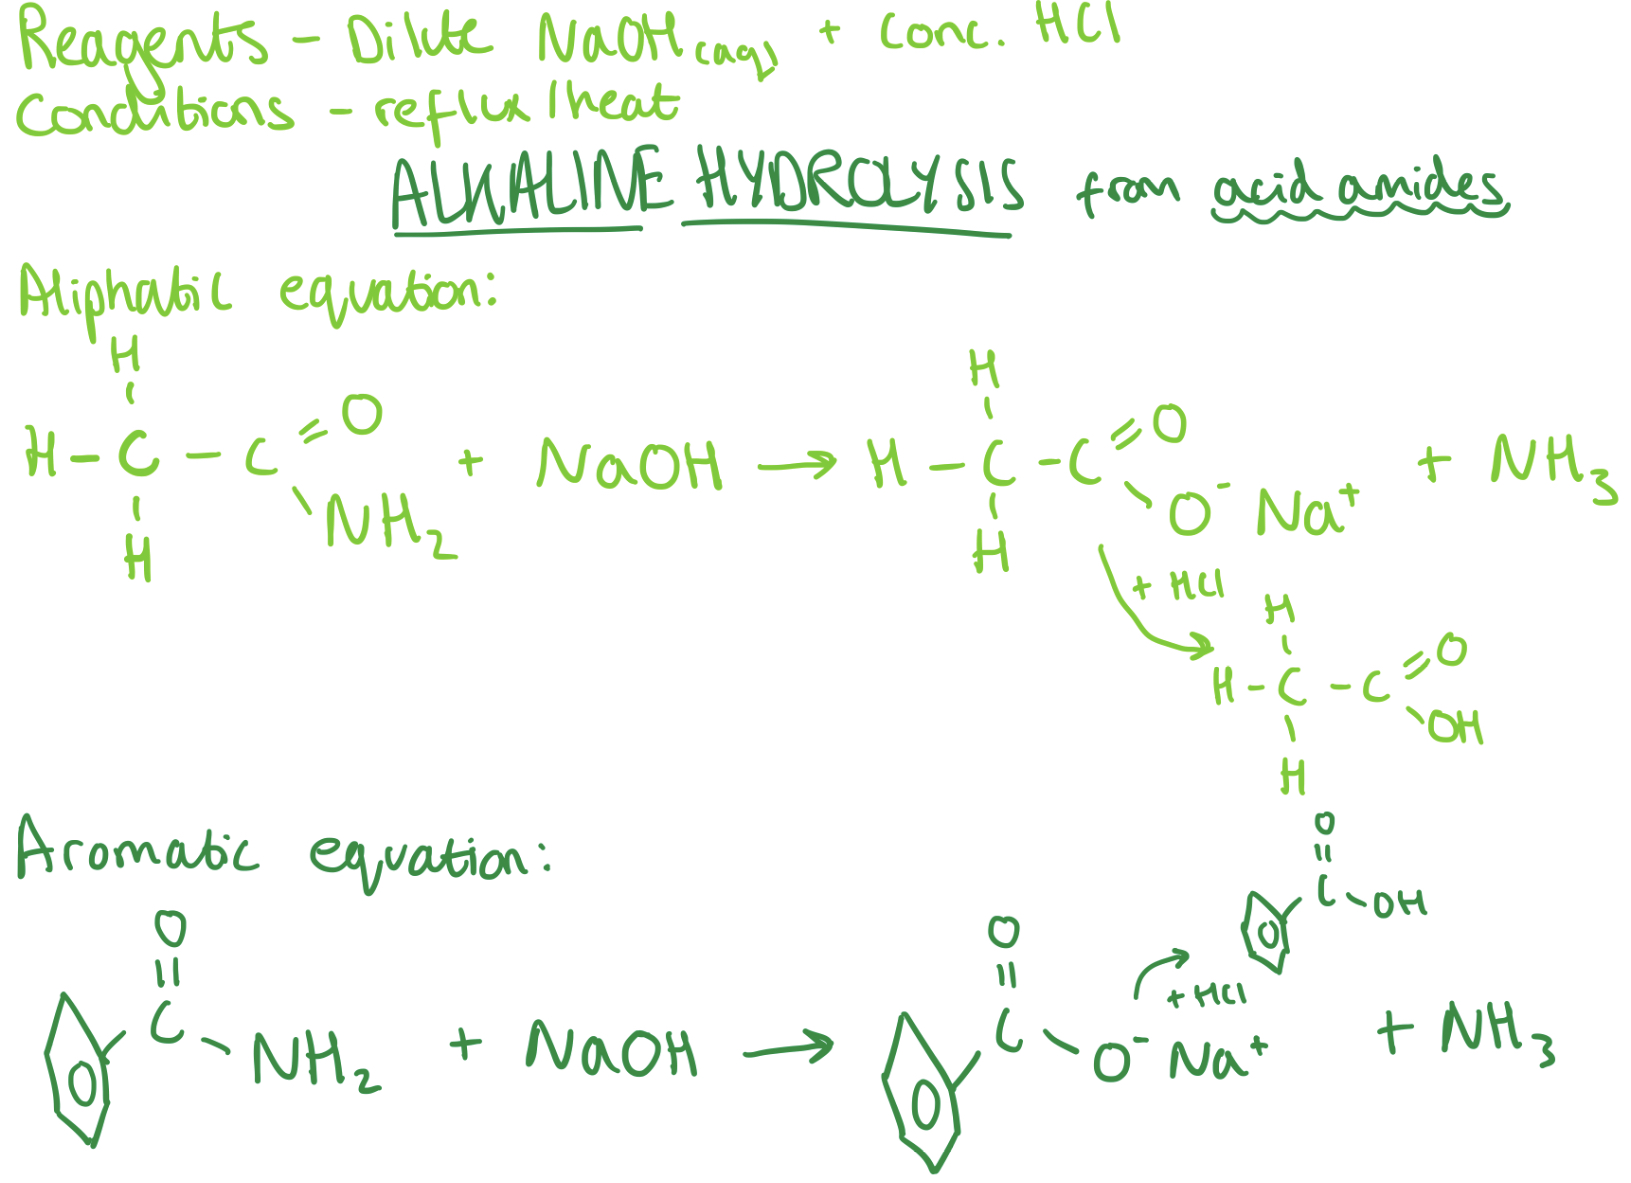 Reagents - Dilute NaOH(aq) + conc. HCl
Conditions - reflux/heat
ALKALINE HYDROLYSIS from acid amides
Aliphatic equation:
H
H - C - C = O
NH2
H
+ NaOH →
H
H - C - C = O
O⁻ Na⁺
H
+ NH3
+ HCl
H
H - C - C = O
OH
H
Aromatic equation:
O
C - OH
O
C - NH2 + NaOH →
O
C - O⁻ Na⁺ + NH3
+ HCl